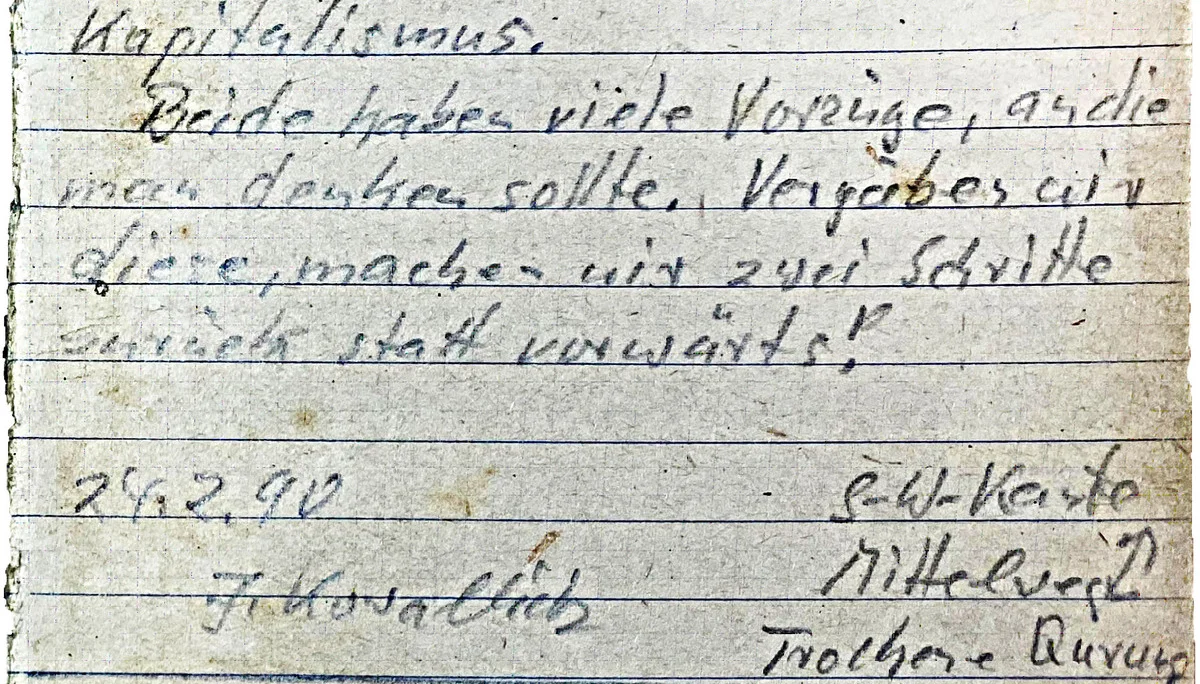 Kapitalismus.
Beide haben viele Vorzüge, an die
man denken sollte. Vergäben wir
diese, machen wir zwei Schritte
zurück statt vorwärts!
24.2.90
S-W-Kante
J. Kowallick
Mittelweg